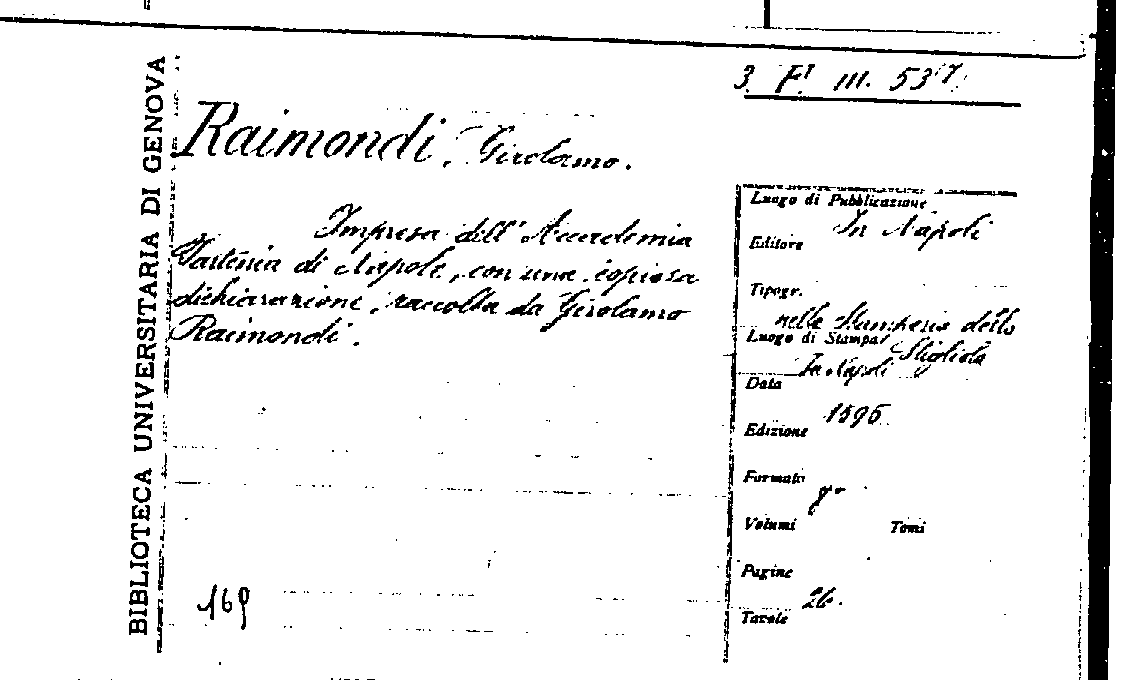 BIBLIOTECA UNIVERSITARIA DI GENOVA
3. F¹ III. 53(7)
Raimondi, Girolamo.
Impresa dell' Accademia
di Napoli, con una copiosa
dichiarazione, raccolta da Girolamo
Raimondi.
169
Luogo di Pubblicazione
In Napoli
Editore
Tipogr.
nella Stamperia dello
Stigliola
Luogo di Stampa
In Napoli
Data
1595
Edizione
Formato
8°
Volumi Tomi
Pagine
26.
Tavole